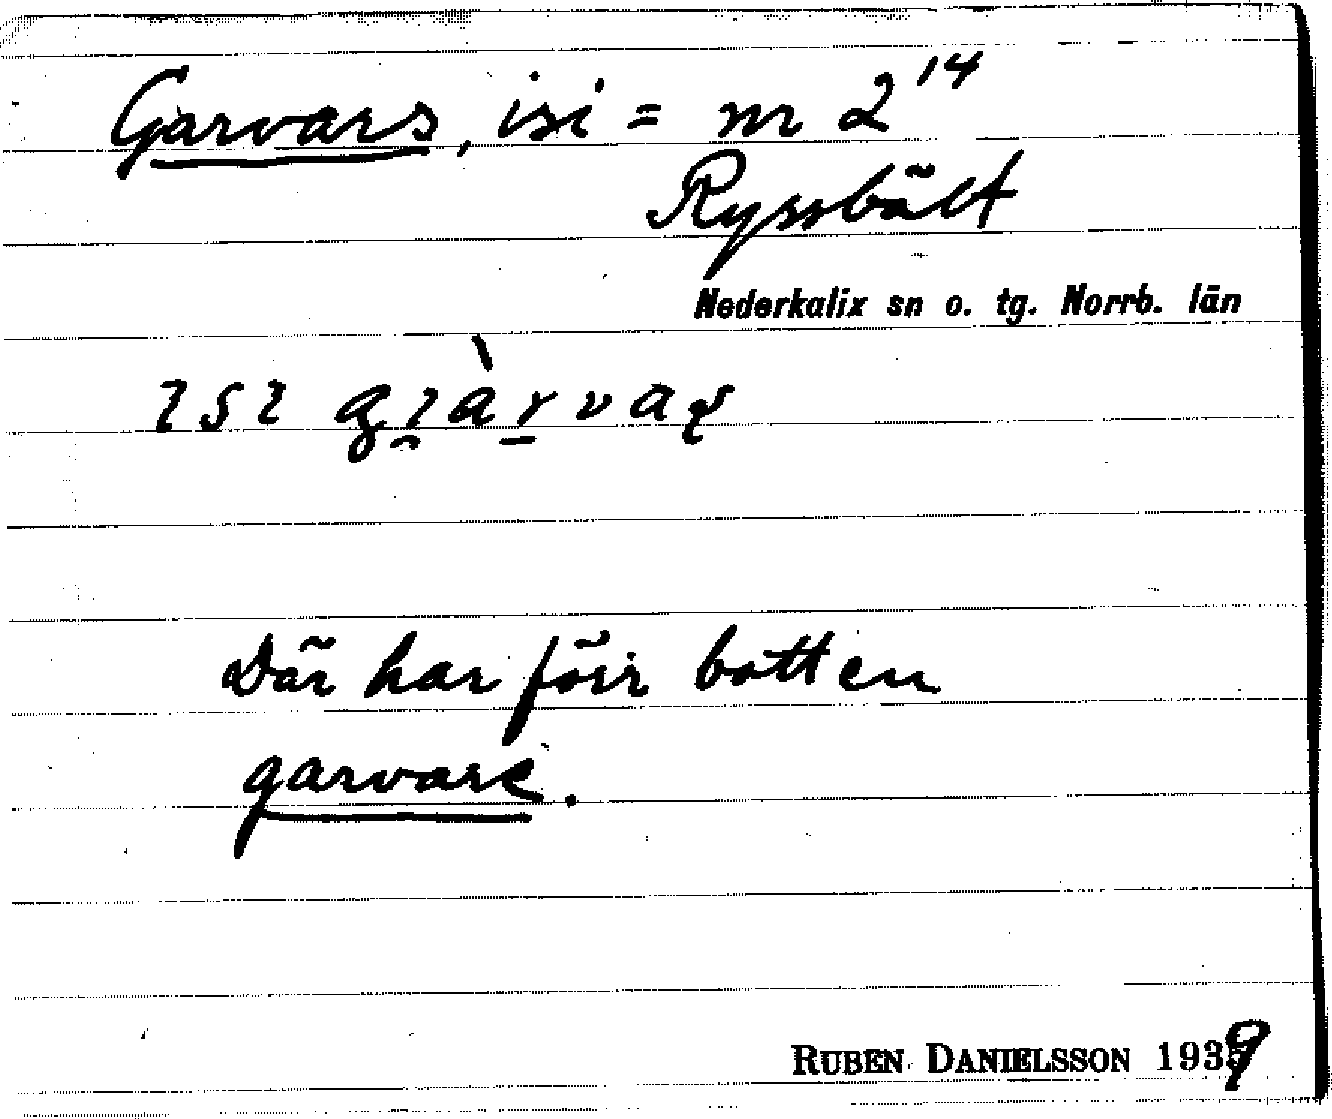 Garvars, isi = nr 2¹⁴
Ryssbält
Nederkalix sn o. tg. Norrb. län
ısı
Där har förr bott en
garvare.
RUBEN DANIELSSON 1939